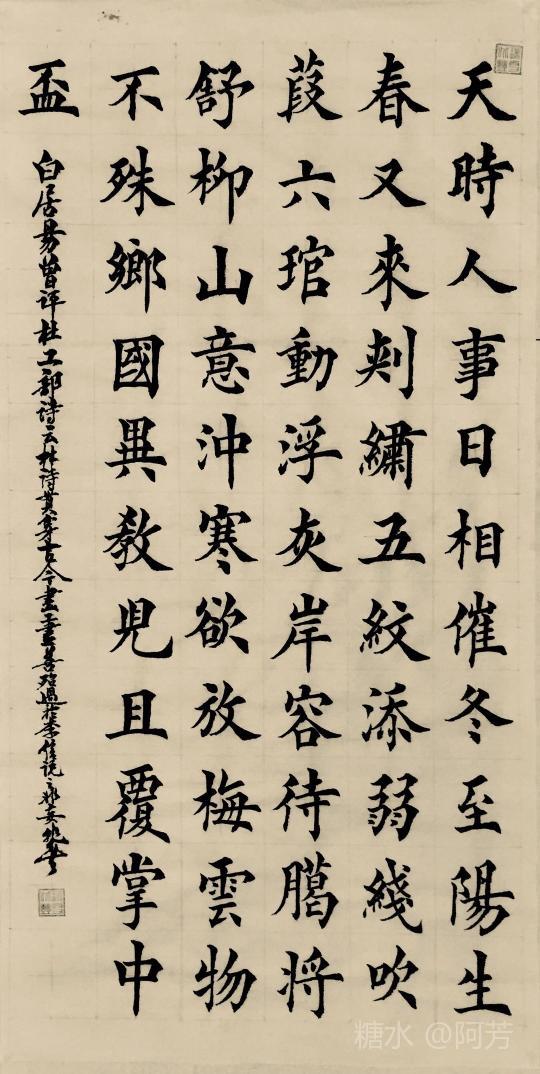 天時人事日相催冬至陽生
春又來刺繡五紋添弱綫吹
葭六琯動浮灰岸容待臘將
舒柳山意沖寒欲放梅雲物
不殊鄉國異教兒且覆掌中
盃
白居易曾評杜工部詩云杜詩貫穿古今盡工盡善殆過於李
糖水 @阿芳